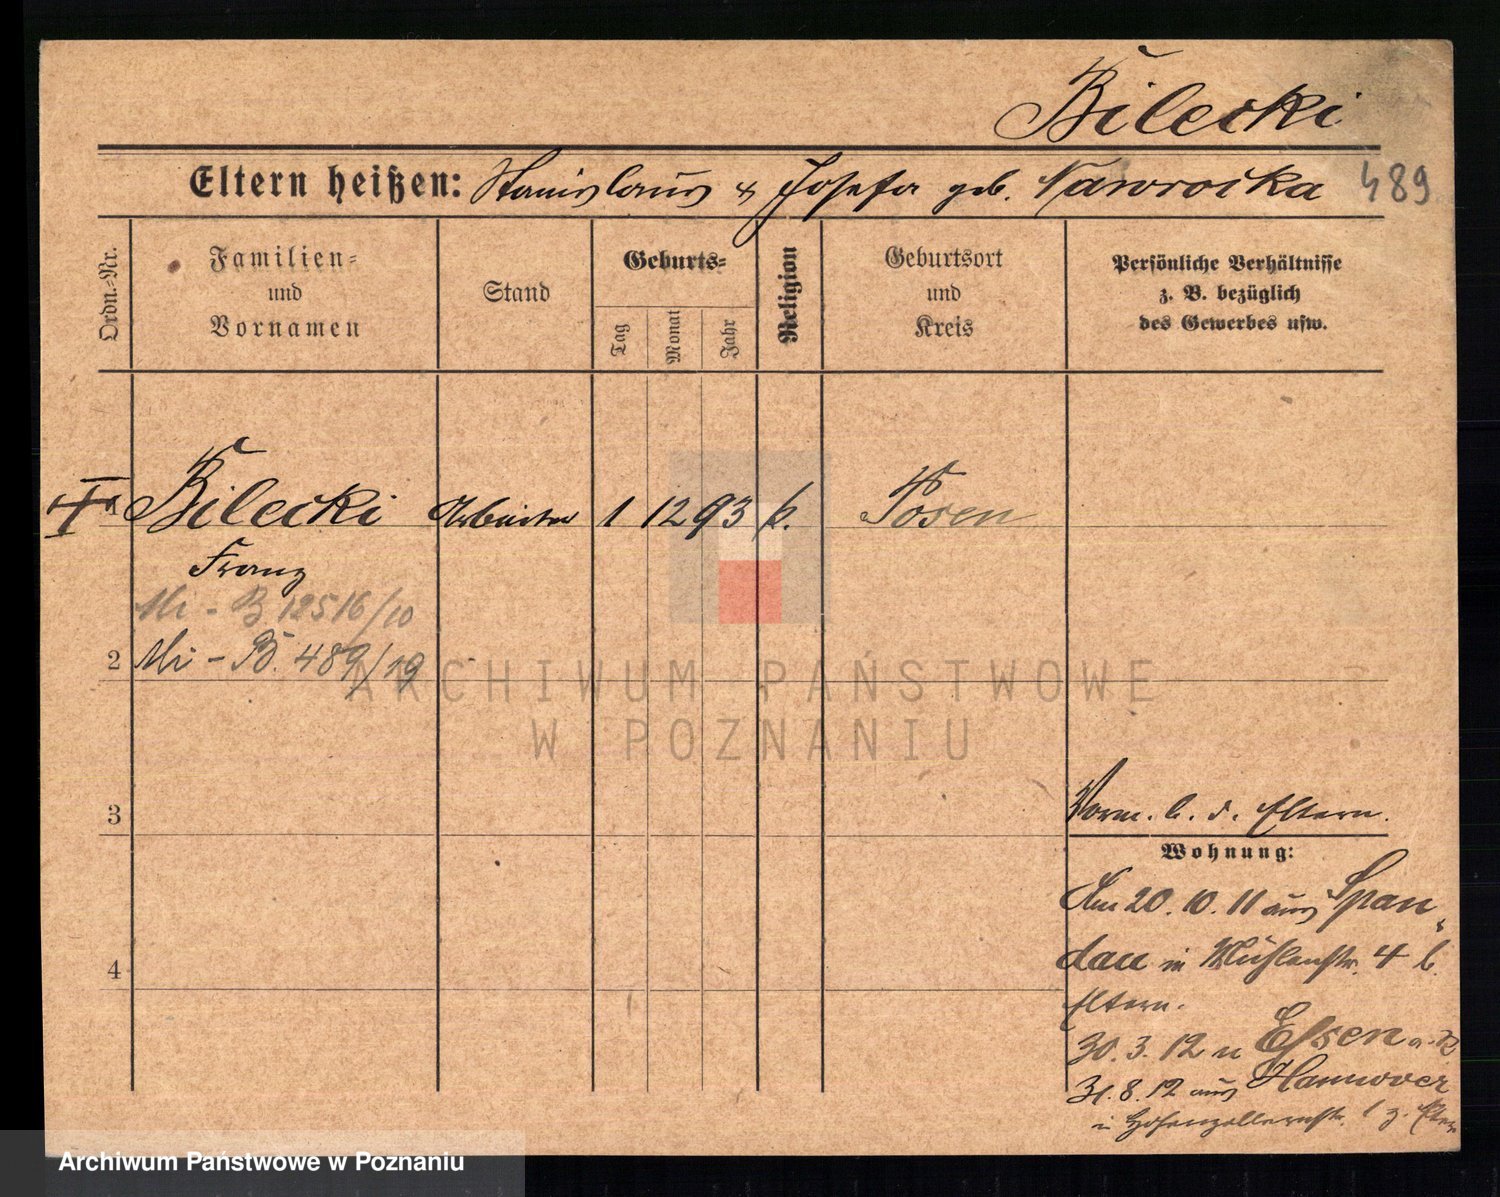 Bilecki
Eltern heißen: Stanislaus & Josefa geb. Nawrocka 489
Ordn.-Nr.
Familien-
und
Vornamen
Stand
Geburts-
Tag
Monat
Jahr
Religion
Geburtsort
und
Kreis
Persönliche Verhältnisse
z. B. bezüglich
des Gewerbes usw.
Bilecki Arbeiter 1 12 93 k. Posen
Franz
Mi - B 12516/10
2 Mi - B. 489/19
ARCHIWUM PAŃSTWOWE
W POZNANIU
3
Vorm. b. d. Eltern.
Wohnung:
Am 20. 10. 11 aus Span-
dau in Mühlenstr. 4 b.
4
Eltern.
30. 3. 12 n Essen a. R
31. 8. 12 aus Hannover
in Hohenzollernstr. 1 z. Eltern
Archiwum Państwowe w Poznaniu